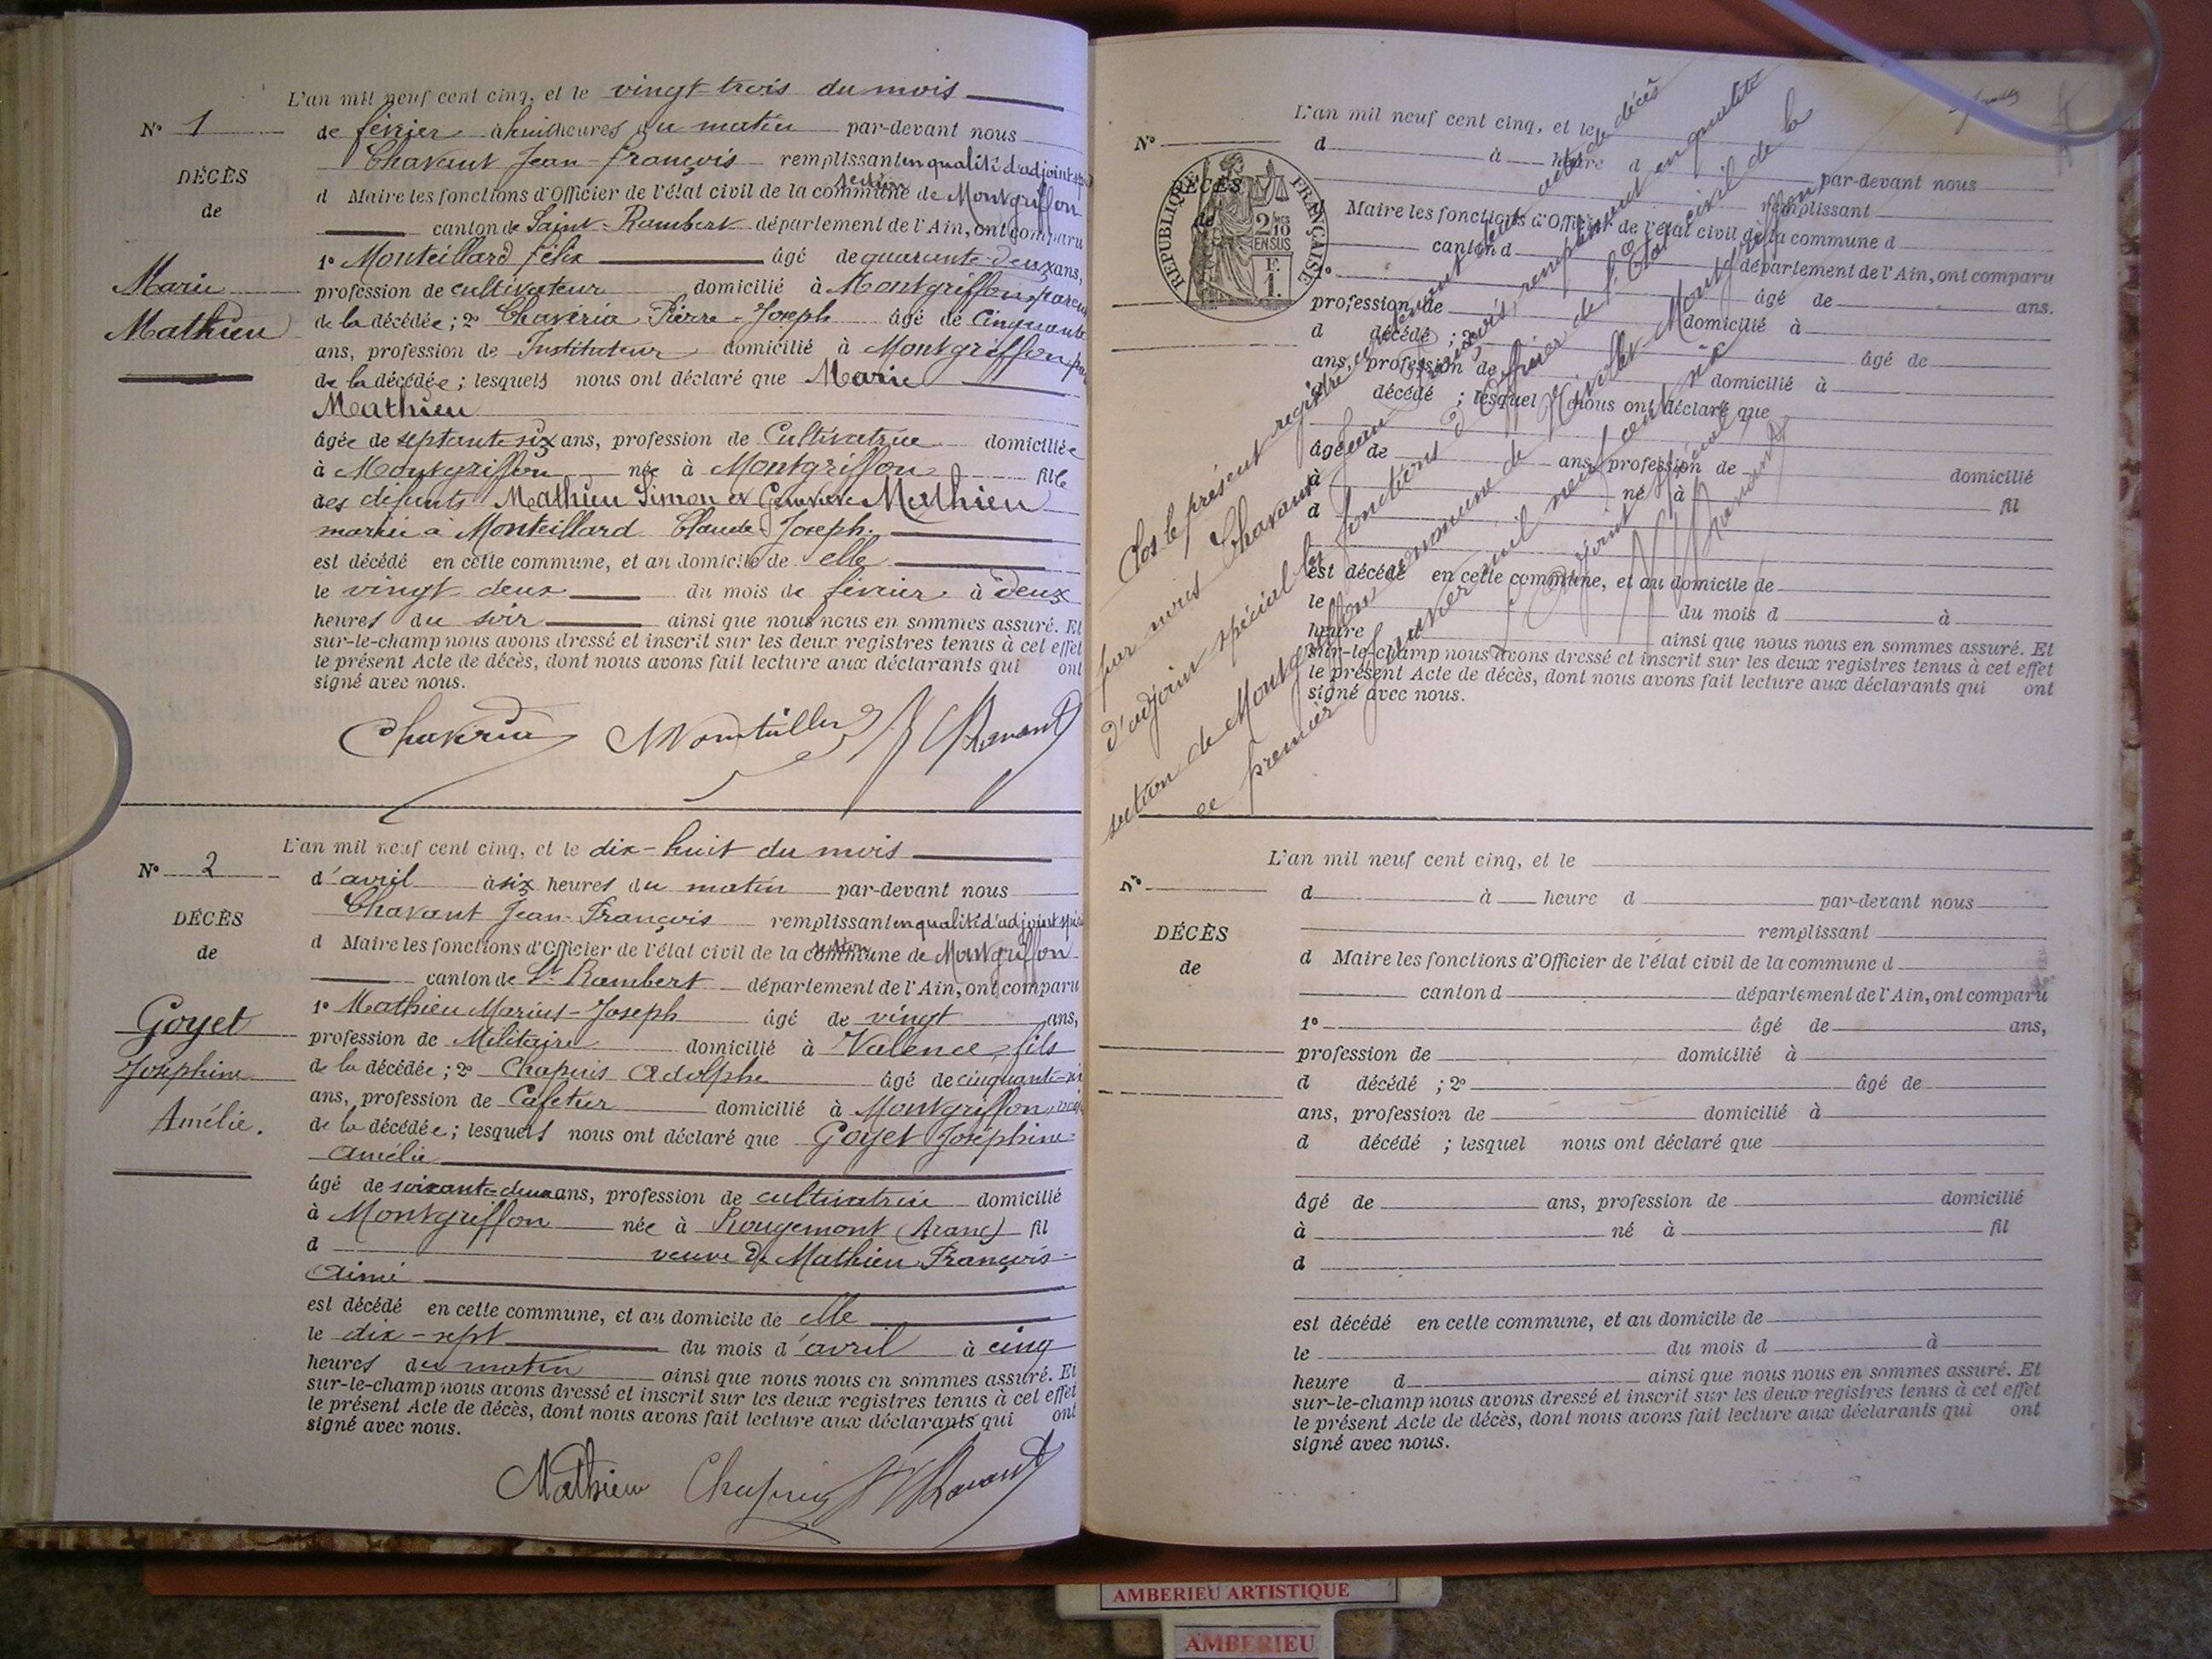 L'an mil neuf cent cinq, et le vingt trois du mois
N° 1
de février à huit heures du matin par-devant nous
DÉCÈS
de
Marie
Mathieu
Chavant Jean-François remplissant en qualité d'adjoint
d Maire les fonctions d'Officier de l'état civil de la commune section de Montgriffon
canton de Saint-Rambert département de l'Ain, ont comparu
1° Monteillard félix âgé de quarante-deux ans,
profession de cultivateur domicilié à Montgriffon
de la décédée ; 2° Chaveria Pierre-Joseph âgé de Cinquante
ans, profession de Instituteur domicilié à Montgriffon
de la décédée ; lesquels nous ont déclaré que Marie
Mathieu
âgée de septante six ans, profession de Cultivatrice domiciliée
à Montgriffon née à Montgriffon fille
des défunts Mathieu Simon et Genevieve Mathieu
mariée à Monteillard Claude Joseph.
est décédé en cette commune, et au domicile de elle
le vingt deux du mois de février à deux
heures du soir ainsi que nous nous en sommes assuré. Et
sur-le-champ nous avons dressé et inscrit sur les deux registres tenus à cet effet
le présent Acte de décès, dont nous avons fait lecture aux déclarants qui ont
signé avec nous.
L'an mil neuf cent cinq, et le dix-huit du mois
N° 2
d'avril à six heures du matin par-devant nous
DÉCÈS
de
Goyet
Joséphine
Amélie.
Chavant Jean-François remplissant en qualité d'adjoint
d Maire les fonctions d'Officier de l'état civil de la commune section de Montgriffon
canton de St Rambert département de l'Ain, ont comparu
1° Mathieu Marius-Joseph âgé de vingt ans,
profession de Militaire domicilié à Valence, fils
de la décédée ; 2° Chapuis Adolphe âgé de cinquante-six
ans, profession de Cafetier domicilié à Montgriffon
de la décédée ; lesquels nous ont déclaré que Goyet Joséphine
Amélie
âgé de soixante-deux ans, profession de cultivatrice domicilié
à Montgriffon née à Rougemont (Aranc) fil
d veuve de Mathieu François
Aimé
est décédé en cette commune, et au domicile de elle
le dix-sept du mois d'avril à cinq
heures du matin ainsi que nous nous en sommes assuré. Et
sur-le-champ nous avons dressé et inscrit sur les deux registres tenus à cet effet
le présent Acte de décès, dont nous avons fait lecture aux déclarants qui ont
signé avec nous.
Mathieu Chapuis
L'an mil neuf cent cinq, et le
N°
d à heure d par-devant nous
DÉCÈS
de
RÉPUBLIQUE FRANÇAISE
2/10 EN SUS
1 F.
remplissant
d Maire les fonctions d'Officier de l'état civil de la commune d
canton d département de l'Ain, ont comparu
1° âgé de ans.
profession de domicilié à
d décédé ; 2° âgé de
ans, profession de domicilié à
d décédé ; lesquel nous ont déclaré que
âgé de ans, profession de domicilié
à né à fil
d
est décédé en cette commune, et au domicile de
le du mois d à
heure ainsi que nous nous en sommes assuré. Et
sur-le-champ nous avons dressé et inscrit sur les deux registres tenus à cet effet
le présent Acte de décès, dont nous avons fait lecture aux déclarants qui ont
signé avec nous.
Clos le présent registre des actes de décès
par nous Chavant Jean François, remplissant en qualité
d'adjoint spécial les fonctions d'Officier de l'Etat civil de la
section de Montgriffon commune de Montgriffon
ce premier Janvier mil neuf cent six
L'adjoint spécial
L'an mil neuf cent cinq, et le
N°
d à heure d par-devant nous
DÉCÈS
de
remplissant
d Maire les fonctions d'Officier de l'état civil de la commune d
canton d département de l'Ain, ont comparu
1° âgé de ans,
profession de domicilié à
d décédé ; 2° âgé de
ans, profession de domicilié à
d décédé ; lesquel nous ont déclaré que
âgé de ans, profession de domicilié
à né à fil
d
est décédé en cette commune, et au domicile de
le du mois d à
heure d ainsi que nous nous en sommes assuré. Et
sur-le-champ nous avons dressé et inscrit sur les deux registres tenus à cet effet
le présent Acte de décès, dont nous avons fait lecture aux déclarants qui ont
signé avec nous.
AMBERIEU ARTISTIQUE
AMBERIEU